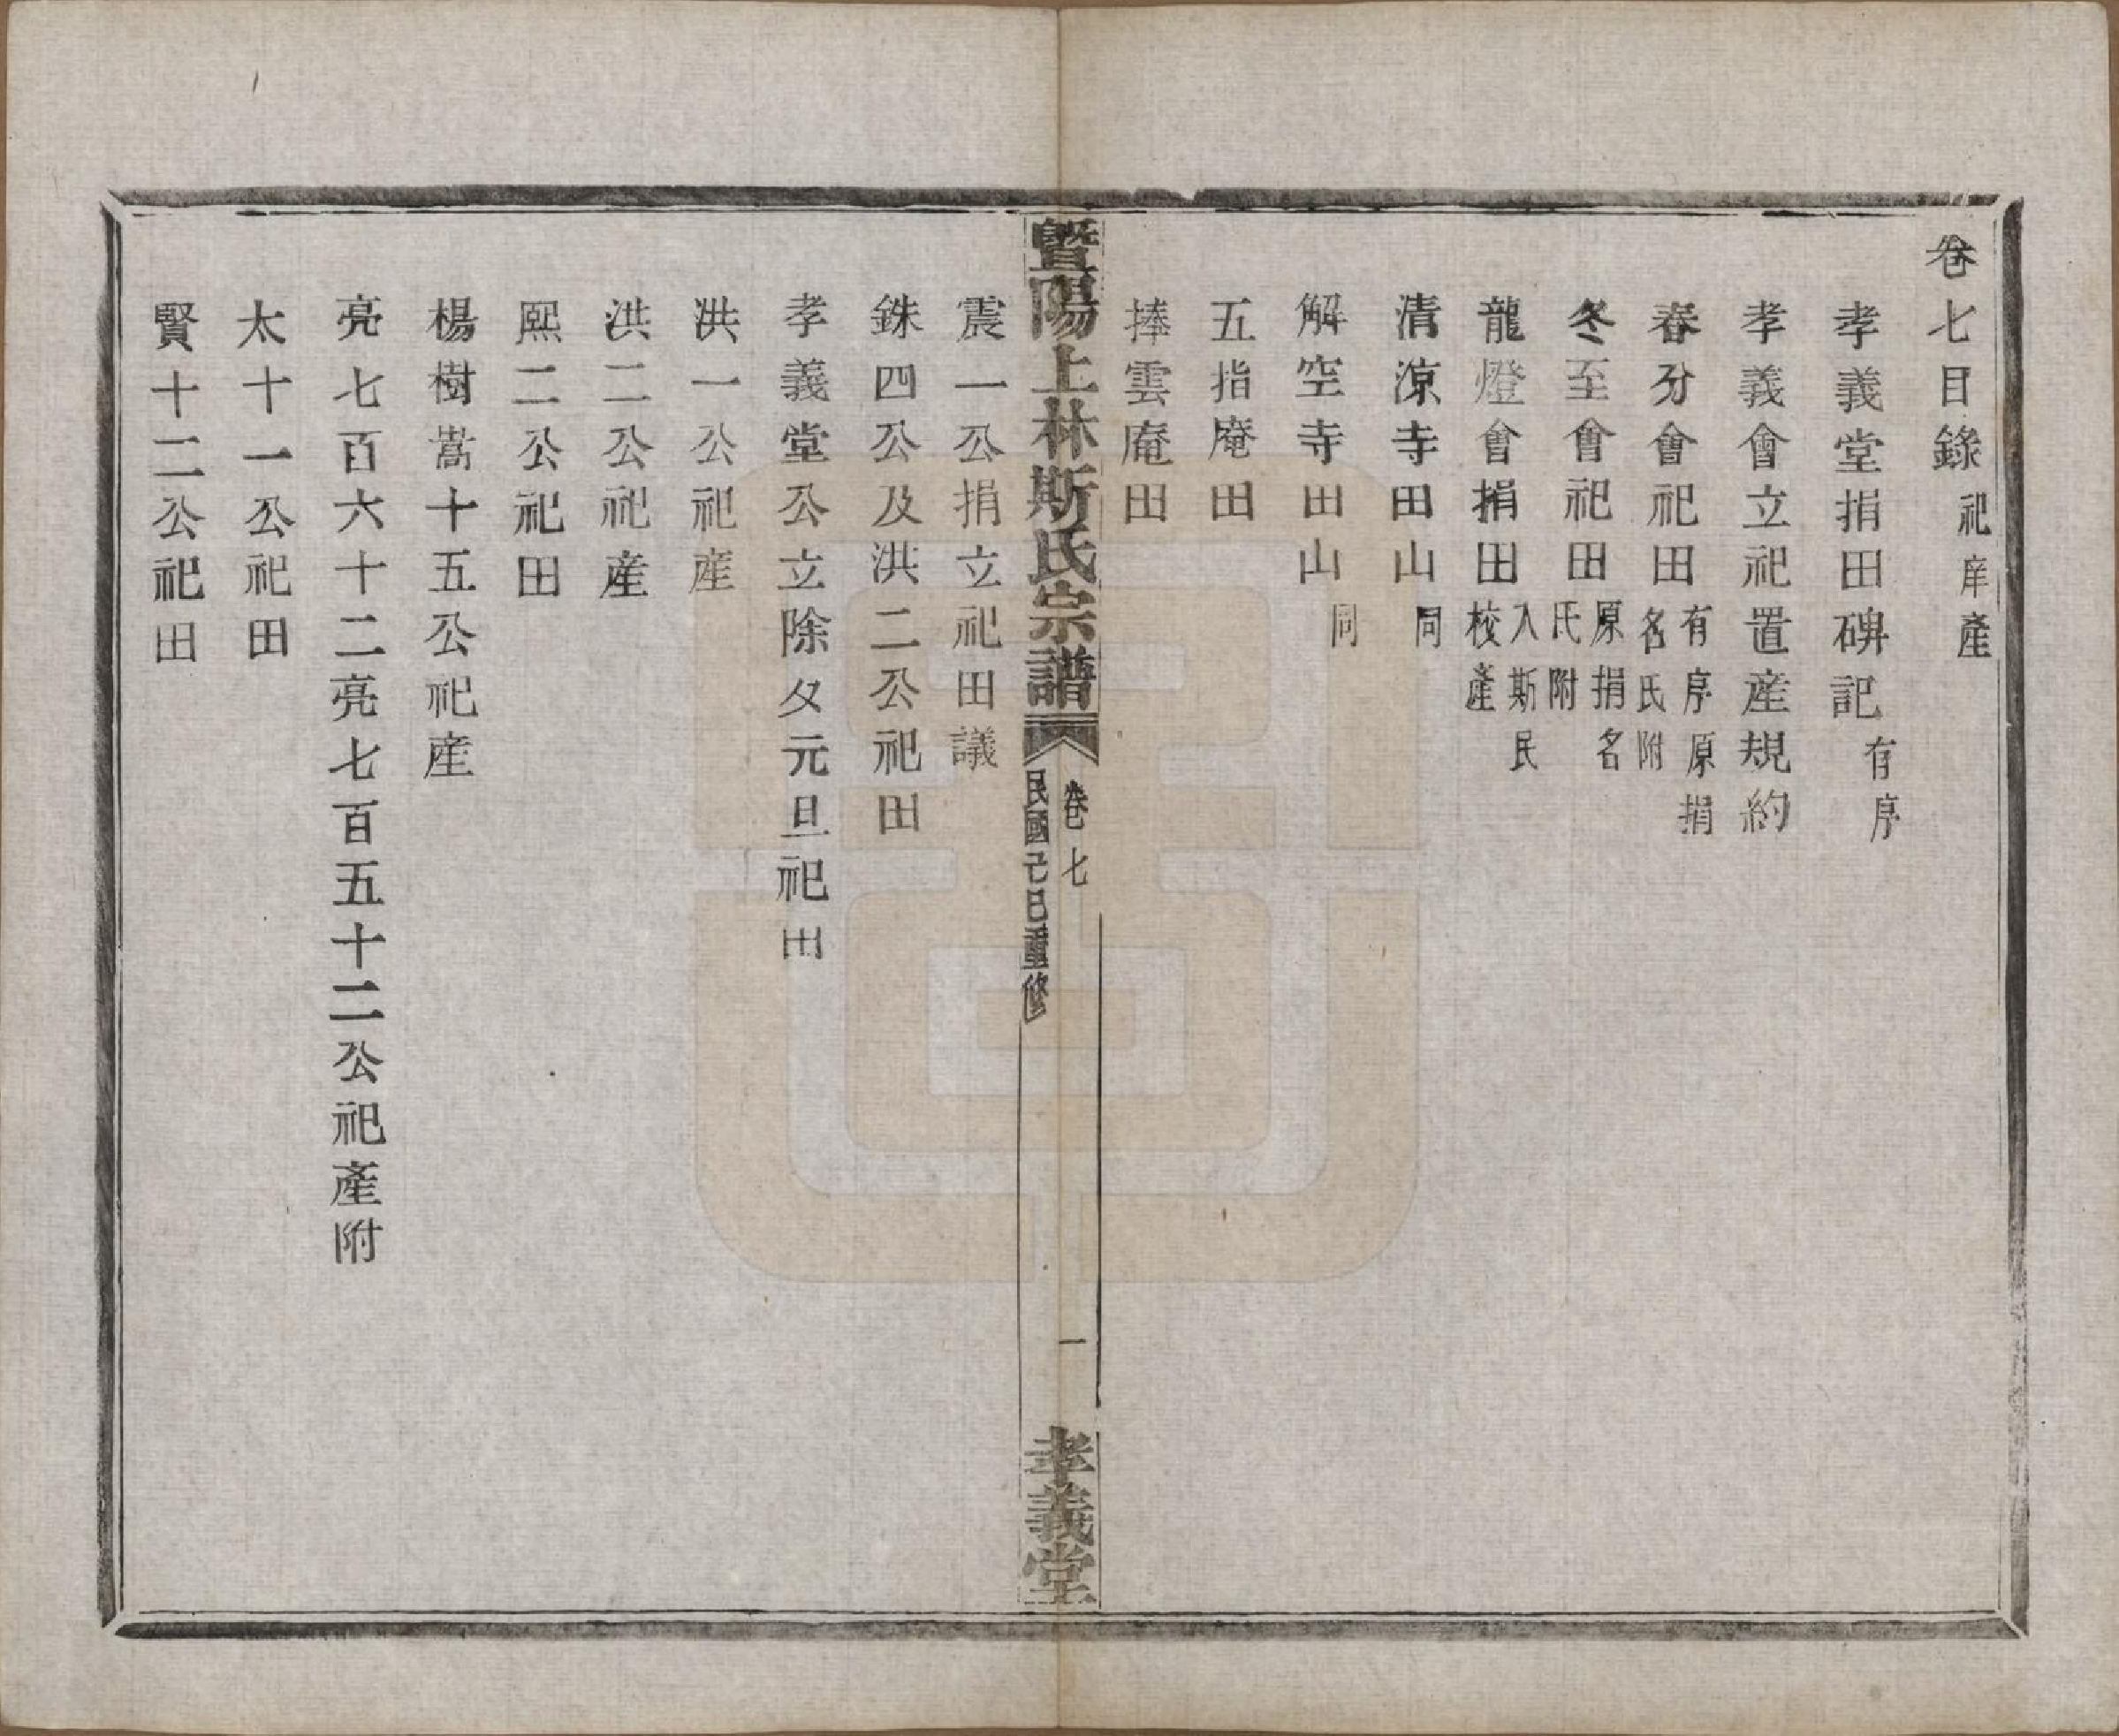 卷七目錄祀庠產
孝義堂捐田碑記有序
孝義會立祀置產規約
春分會祀田有序原捐名氏附
冬至會祀田原捐名氏附
龍燈會捐田入斯民校產
清涼寺田山同
解空寺田山同
五指庵田
捧雲庵田
暨陽上林斯氏宗譜
卷七
民國己巳重修
一
孝義堂
震一公捐立祀田議
銖四公及洪二公祀田
孝義堂公立除夕元旦祀田
洪一公祀產
洪二公祀產
熙二公祀田
楊樹嵩十五公祀產
亮七百六十二亮七百五十二公祀產附
太十一公祀田
賢十二公祀田